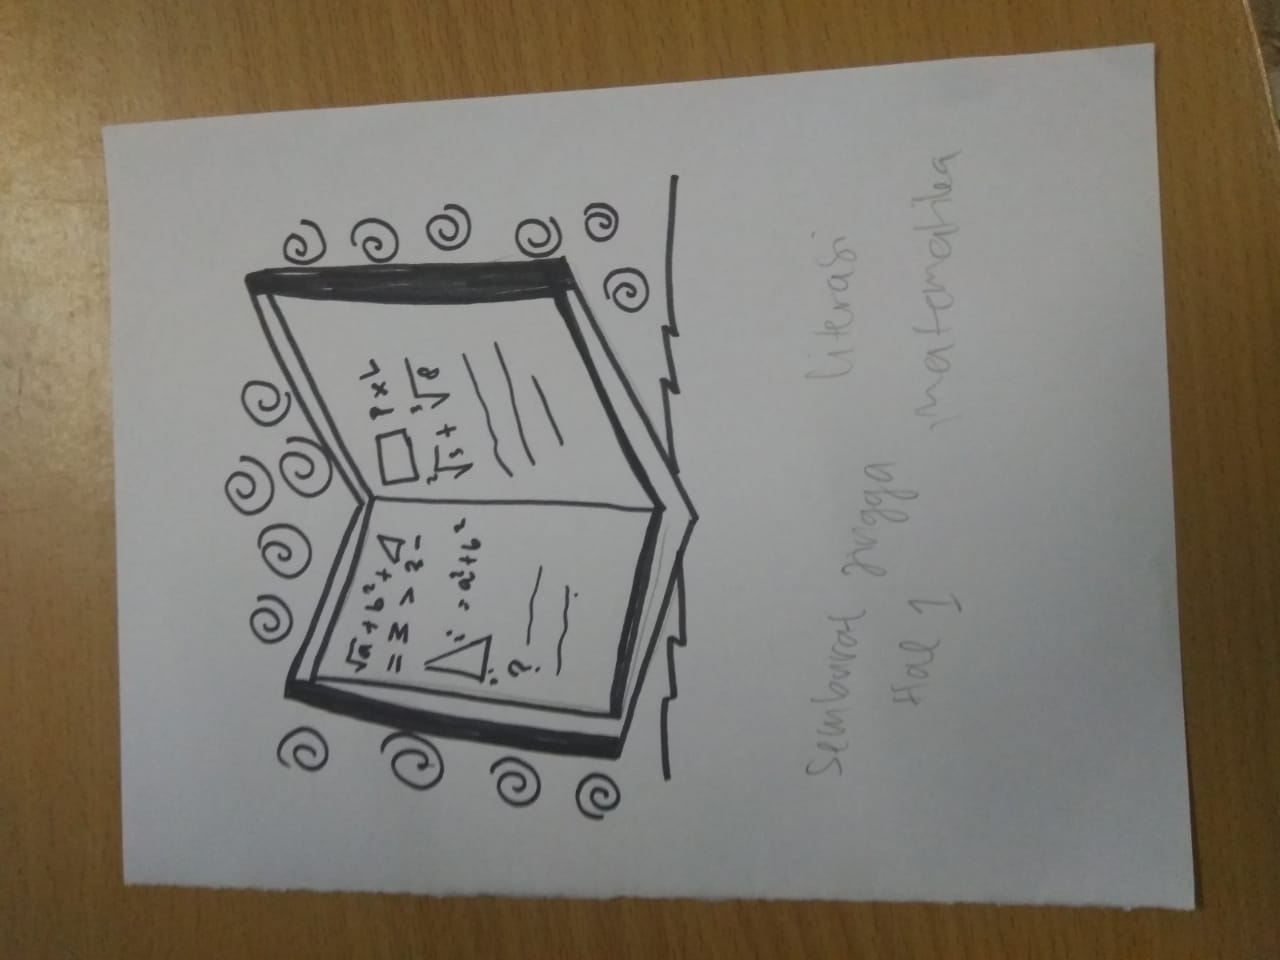 √a + b² + △
= 3 > 2 -
= a² + b²
?
P x L
³√3 + ³√8
Semburat jingga literasi
Hal 1 matematika